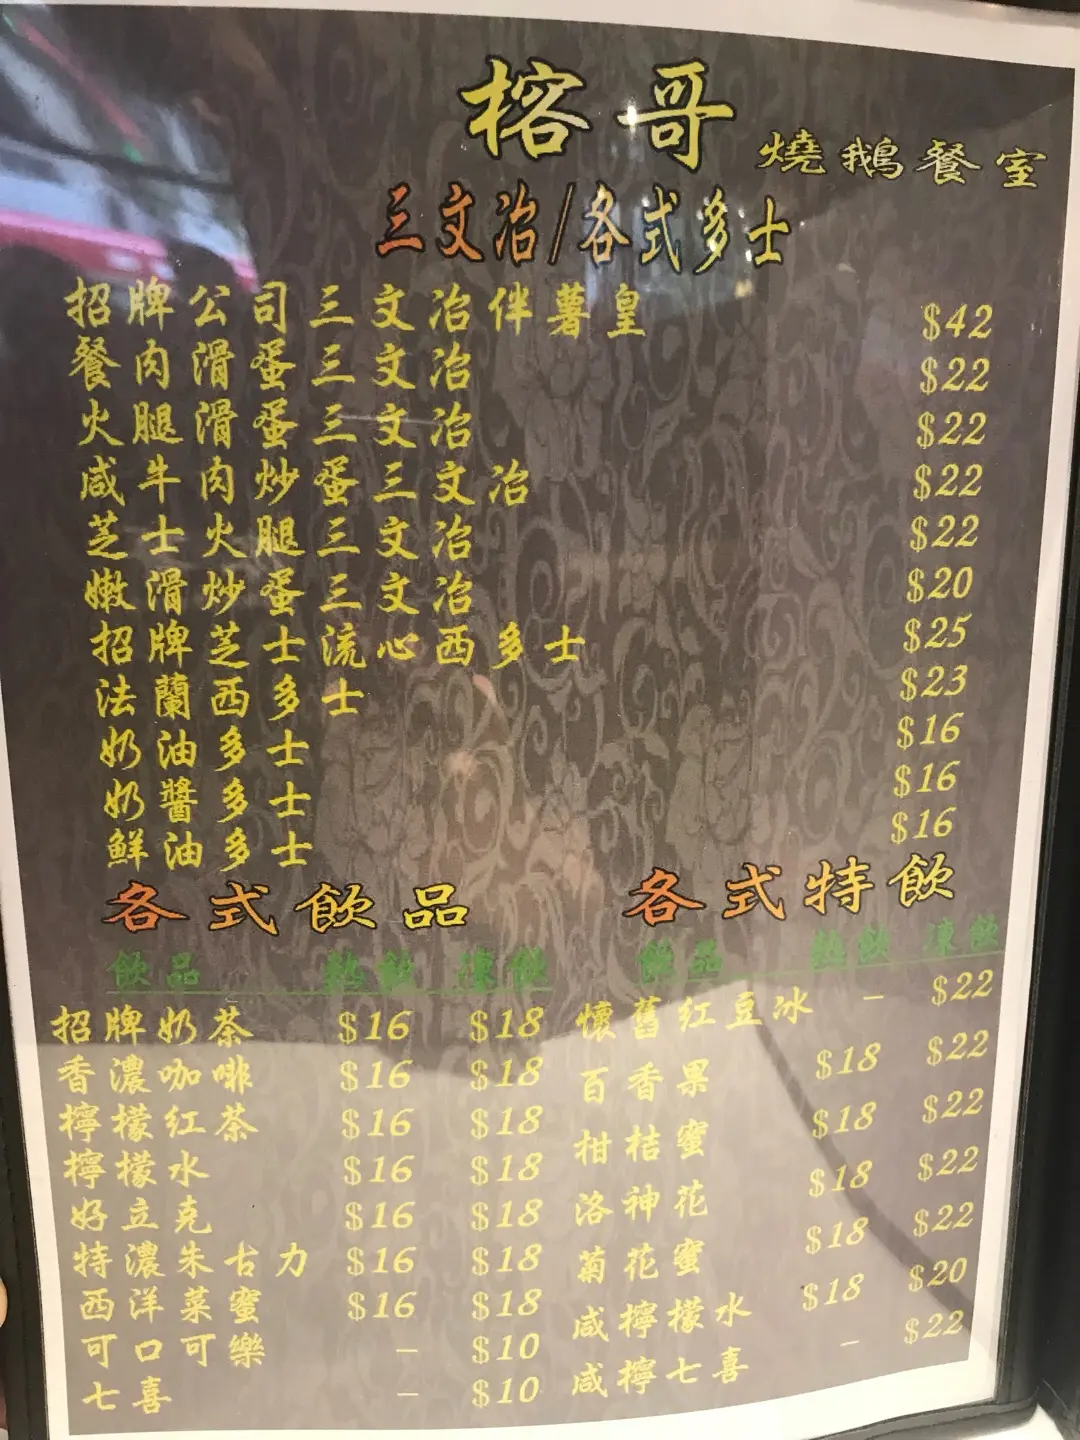 榕哥 燒鵝餐室
三文治/各式多士
招牌公司三文治伴薯皇 $42
餐肉滑蛋三文治 $22
火腿滑蛋三文治 $22
咸牛肉炒蛋三文治 $22
芝士火腿三文治 $22
嫩滑炒蛋三文治 $20
招牌芝士流心西多士 $25
法蘭西多士 $23
奶油多士 $16
奶醬多士 $16
鮮油多士 $16
各式飲品
飲品 熱飲 凍飲
招牌奶茶 $16 $18
香濃咖啡 $16 $18
檸檬紅茶 $16 $18
檸檬水 $16 $18
好立克 $16 $18
特濃朱古力 $16 $18
西洋菜蜜 $16 $18
可口可樂 - $10
七喜 - $10
各式特飲
飲品 熱飲 凍飲
懷舊紅豆冰 - $22
百香果 $18 $22
柑桔蜜 $18 $22
洛神花 $18 $22
菊花蜜 $18 $22
咸檸檬水 $18 $20
咸檸七喜 - $22